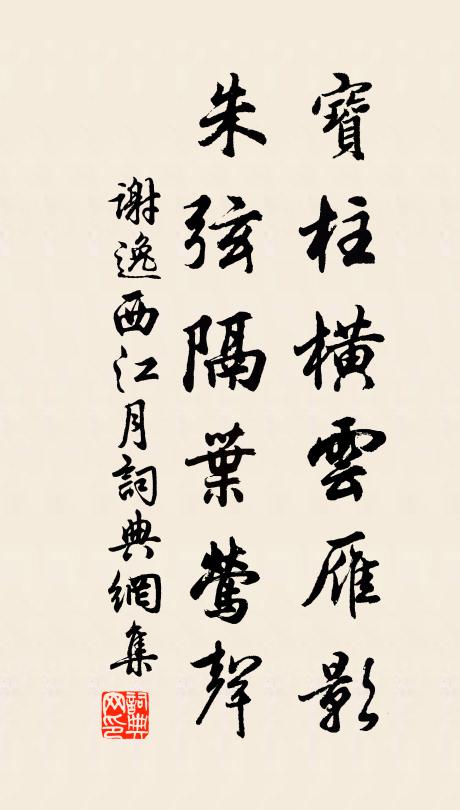 寶柱橫雲雁影
朱弦隔葉鶯聲
謝逸西江月詞典網集
詞典網印